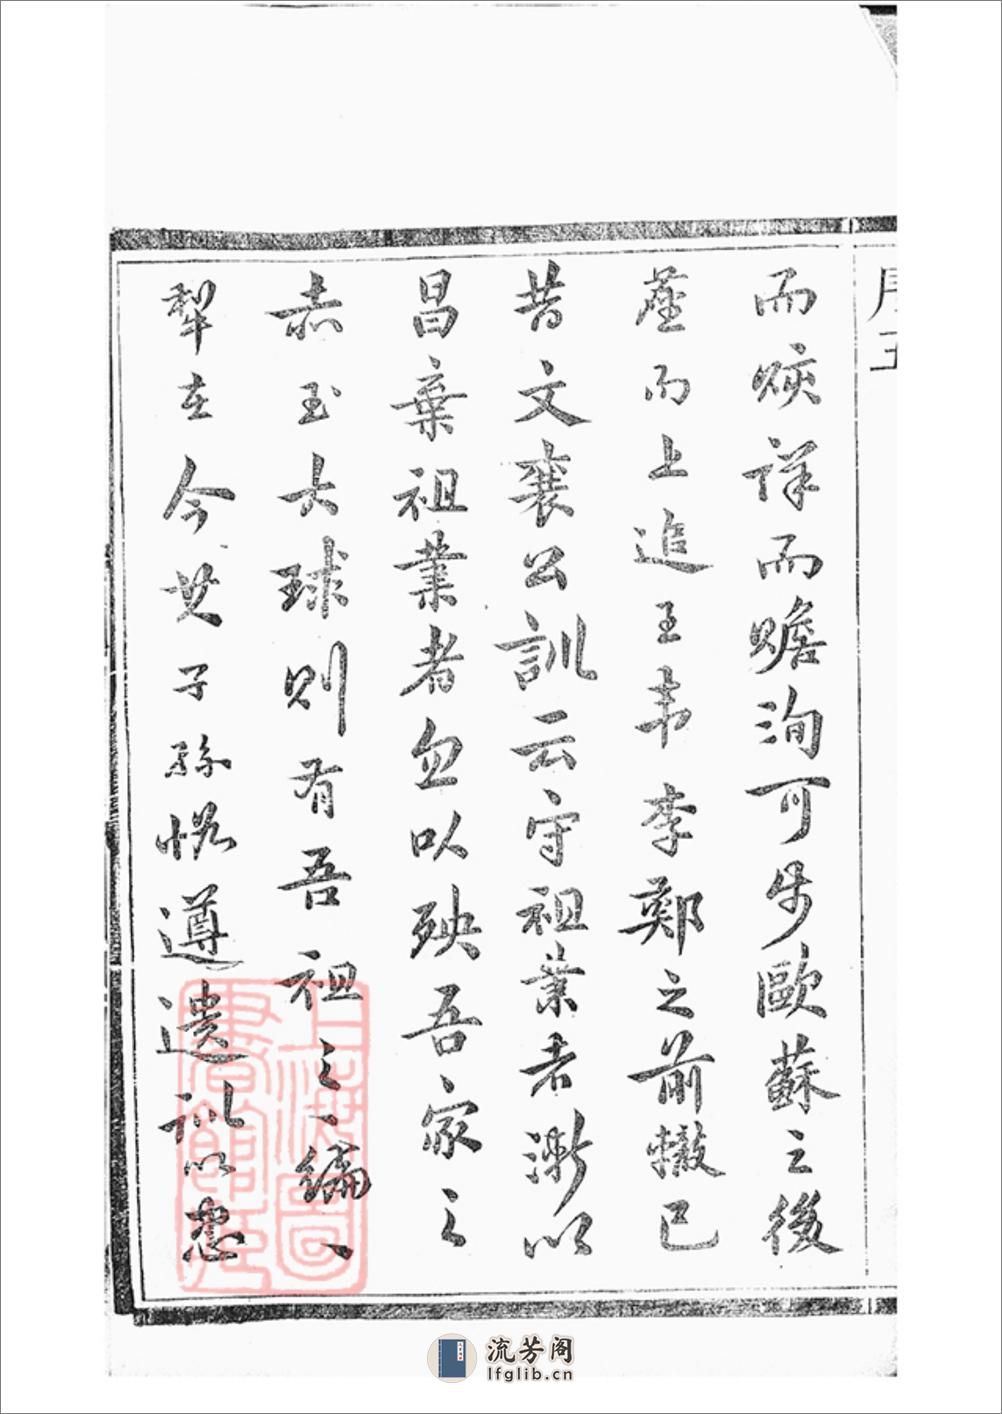 序五
而賅詳而贍洵可步歐蘇之後
塵而上追王韋李鄭之前轍已
昔文襄公訓云守祖業者漸以
昌棄祖業者勿以殃吾家之
赤玉大球則有吾祖之編
犁在今世子孫恪遵遺訓以忠
上海圖書館藏
流芳阁
lfglib.cn